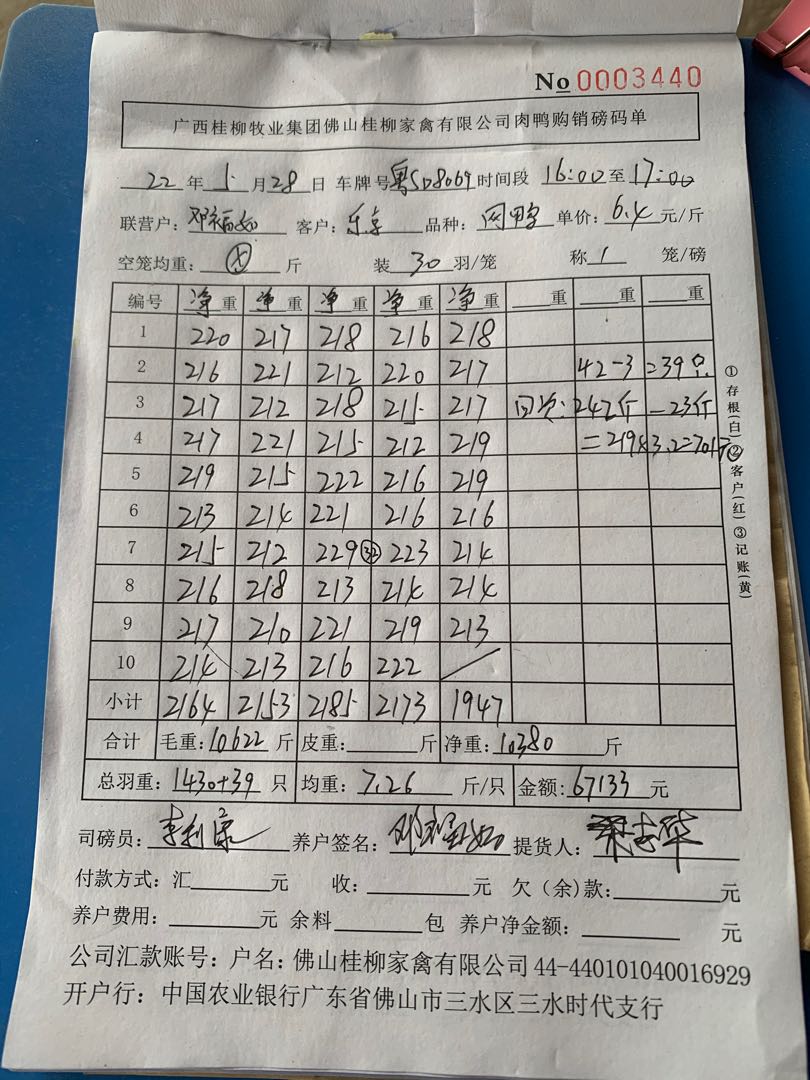 No 0003440
广西桂柳牧业集团佛山桂柳家禽有限公司肉鸭购销磅码单
22 年 5 月 28 日 车牌号 粤SD8069 时间段 16:00 至 17:00
联营户: 邓福如 客户: 乐享 品种: 网鸭 单价: 6.4 元/斤
空笼均重: 斤 装 30 羽/笼 称 1 笼/磅
编号 净重 净重 净重 净重 净重 重 重 重
1 220 217 218 216 218
2 216 221 212 220 217 42-3 =39只
3 217 212 218 215 217 242斤 -23斤
4 217 221 215 212 219 =219×3.2=701元
5 219 215 222 216 219
6 213 214 221 216 216
7 215 212 229 32 223 214
8 216 218 213 214 214
9 217 210 221 219 213
10 214 213 216 222 /
小计 2164 2153 2185 2173 1947
合计 毛重: 10622 斤 皮重: 斤 净重: 10380 斤
总羽重: 1430+39 只 均重: 7.26 斤/只 金额: 67133 元
司磅员: 李利家 养户签名: 邓福如 提货人: 梁志华
付款方式: 汇 元 收: 元 欠(余)款: 元
养户费用: 元 余料 包 养户净金额: 元
公司汇款账号: 户名: 佛山桂柳家禽有限公司 44-440101040016929
开户行: 中国农业银行广东省佛山市三水区三水时代支行
①存根(白)②客户(红)③记账(黄)